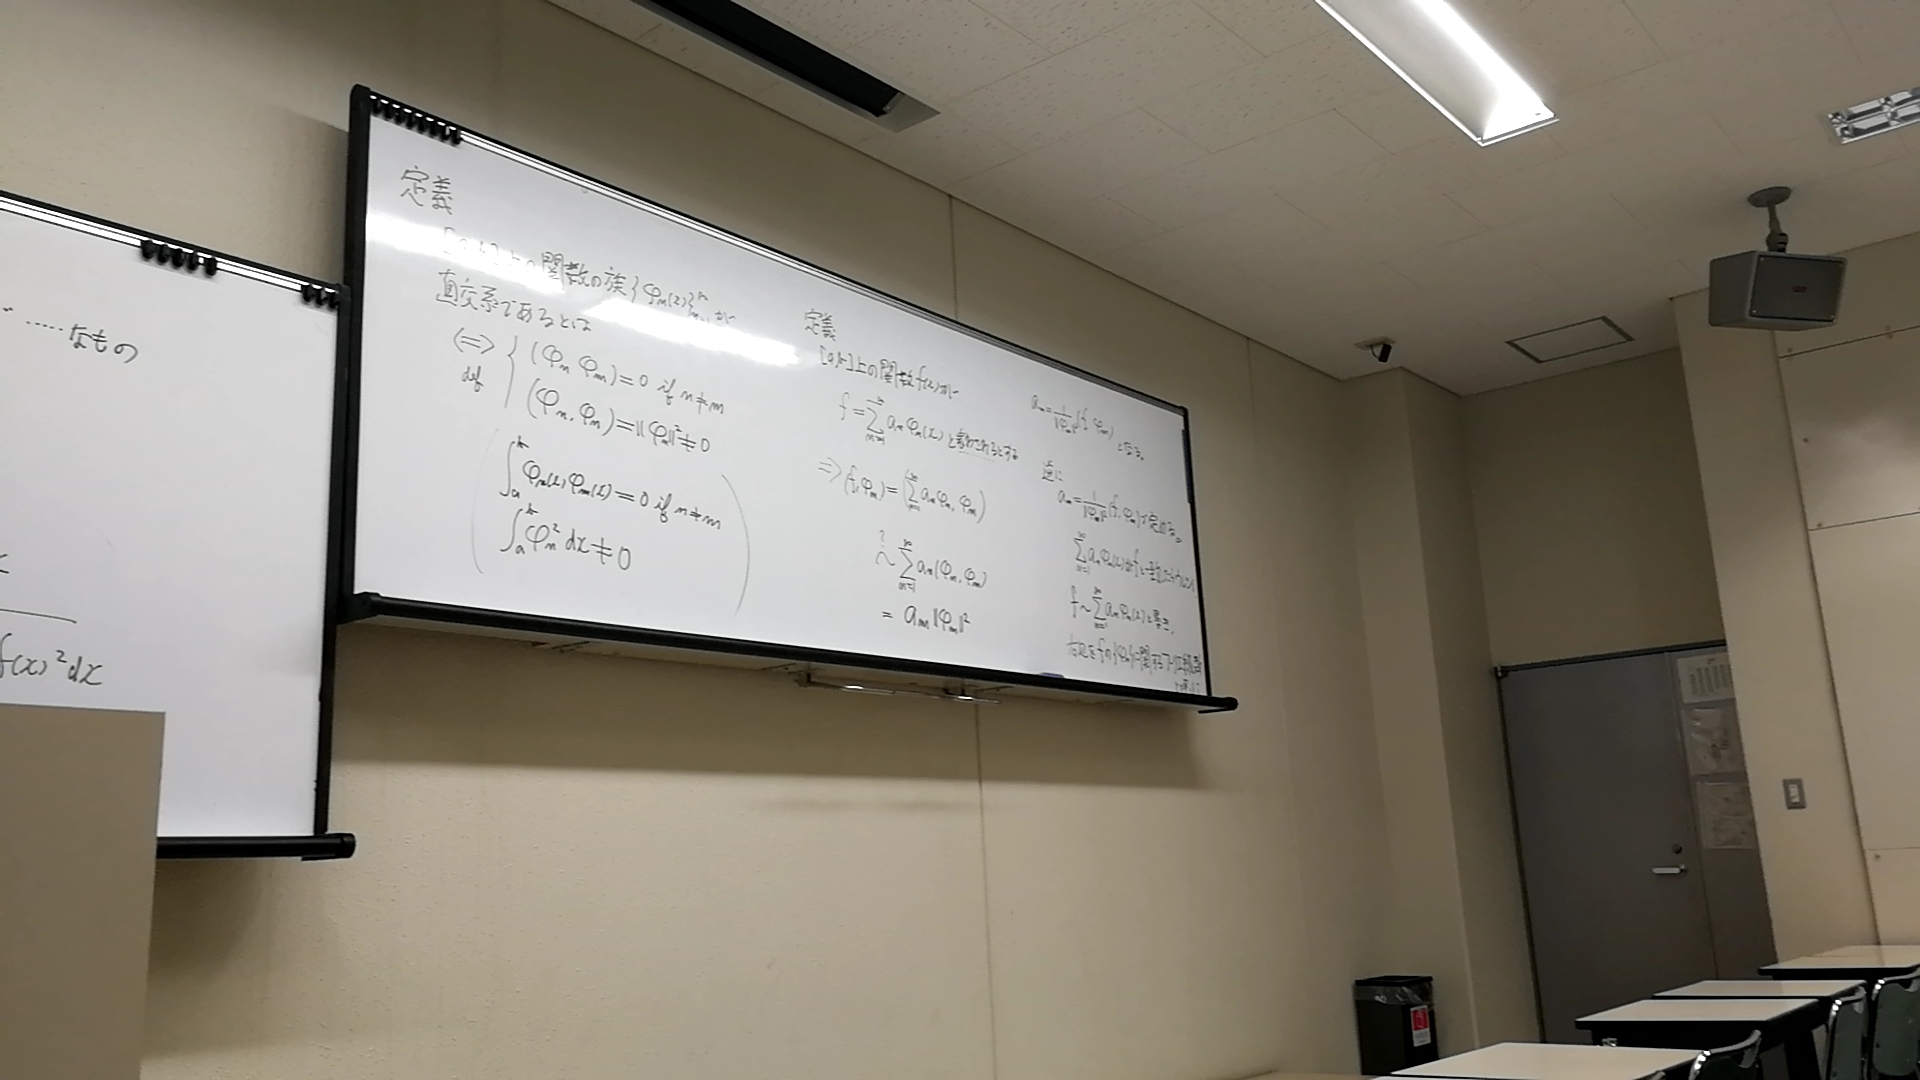 …… なもの
f(x)²dx
定義
[a,b]上の関数の族{φₙ(x)}ₙ₌₁^∞が
直交系であるとは
⟺ { (φₙ, φₘ) = 0 if n≠m
def (φₙ, φₙ) = ||φₙ||² ≠ 0
∫ₐᵇ φₙ(x) φₘ(x) = 0 if n≠m
∫ₐᵇ φₙ² dx ≠ 0
定義
[a,b]上の関数f(x)が
f = Σₙ₌₁^∞ aₙφₙ(x) と表わされるとする
⇒ (f, φₘ) = (Σₙ₌₁^∞ aₙφₙ, φₘ)
?
~ Σₙ₌₁^∞ aₙ(φₙ, φₘ)
= aₘ||φₘ||²
aₘ = 1/||φₘ||² (f, φₘ) となる。
逆に
aₘ = 1/||φₘ||² (f, φₘ) で定める。
Σₙ₌₁^∞ aₙφₙ(x) が f と
f ~ Σₙ₌₁^∞ aₙφₙ(x) と書き、
右辺をfの{φₙ}に関するフーリエ級数